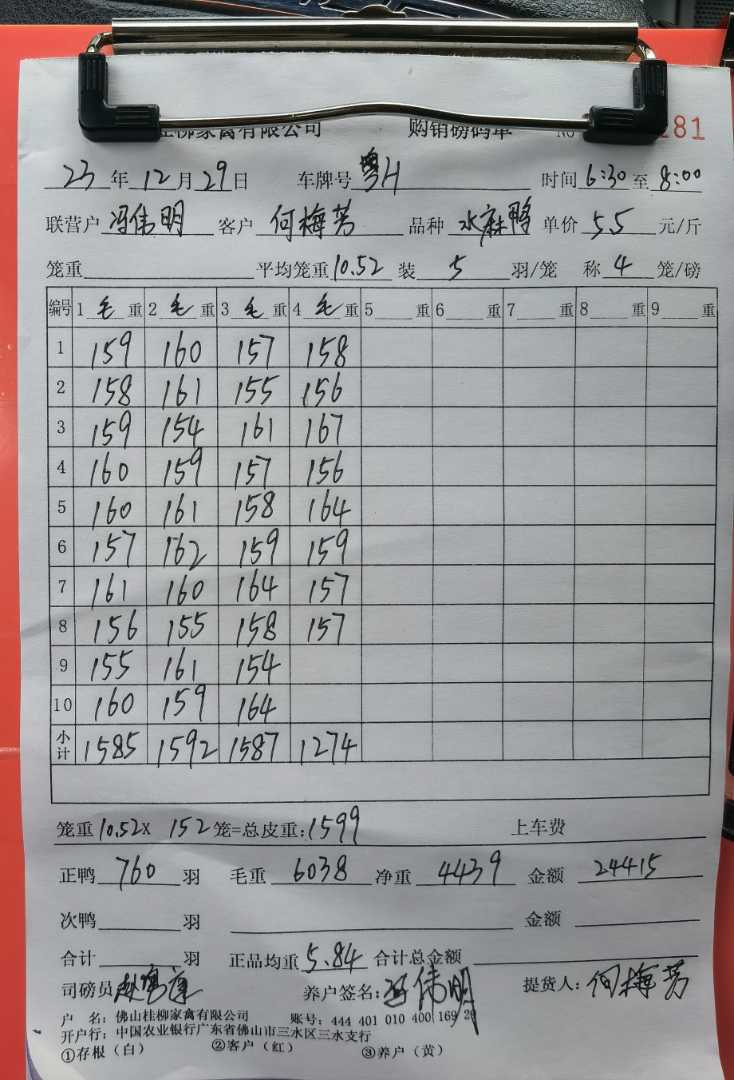 桂柳家禽有限公司 购销磅码单 No 281
23年12月29日 车牌号 粤H 时间6:30至8:00
联营户 冯伟明 客户 何梅芳 品种 水麻鸭 单价 5.5 元/斤
笼重 平均笼重10.52 装 5 羽/笼 称 4 笼/磅
编号 1 毛 重 2 毛 重 3 毛 重 4 毛 重 5 重 6 重 7 重 8 重 9 重
1 159 160 157 158
2 158 161 155 156
3 159 154 161 167
4 160 159 157 156
5 160 161 158 164
6 157 162 159 159
7 161 160 164 157
8 156 155 158 157
9 155 161 154
10 160 159 164
小计 1585 1592 1587 1274
笼重 10.52x 152笼=总皮重:1599 上车费
正鸭 760 羽 毛重 6038 净重 4439 金额 24415
次鸭 羽 金额
合计 羽 正品均重 5.84 合计总金额
司磅员 养户签名:冯伟明 提货人:何梅芳
户 名:佛山桂柳家禽有限公司 账号:444 401 010 400 169 20
开户行:中国农业银行广东省佛山市三水区三水支行
①存根(白) ②客户(红) ③养户(黄)